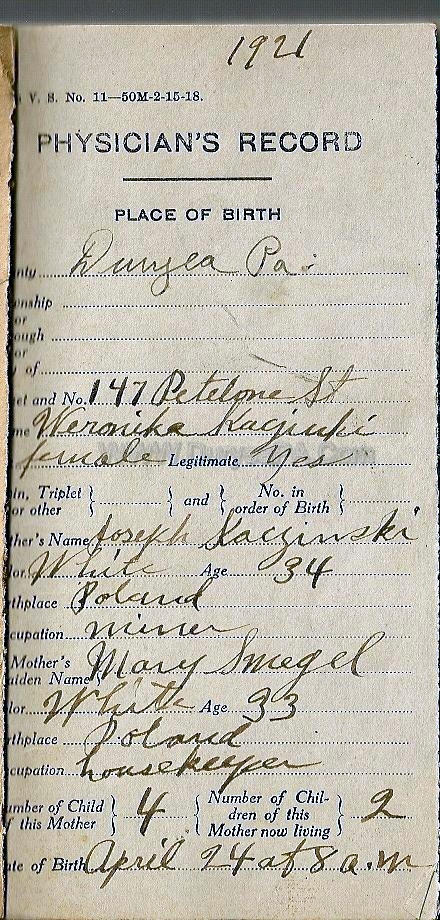 1921
V. S. No. 11—50M-2-15-18.
PHYSICIAN'S RECORD
PLACE OF BIRTH
nty Duryea Pa.
nship
or
ough
or
of
et and No. 147 Petelone St
me Weronika
female Legitimate Yes
in, Triplet } and { No. in
or other order of Birth }
ther's Name Joseph Kaczinski
lor White Age 34
thplace Poland
cupation miner
Mother's Mary Smegel
aiden Name
lor White Age 33
thplace Poland
cupation housekeeper
umber of Child } 4 { Number of Chil- } 2
f this Mother dren of this
Mother now living
ate of Birth April 24 at 8 a.m